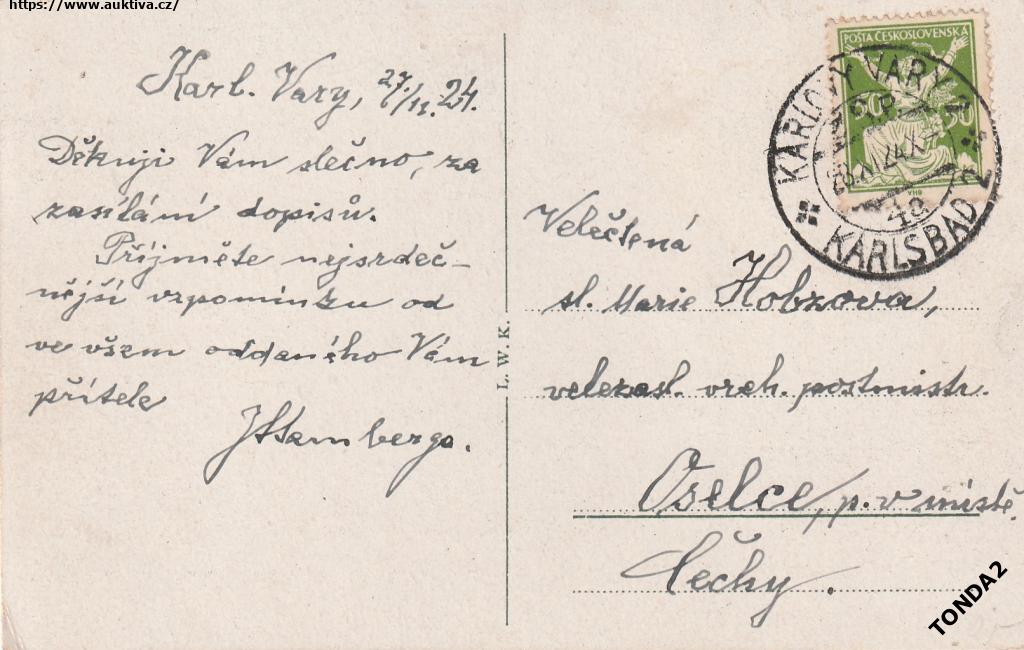 https://www.auktiva.cz/
Karl. Vary, 27./11. 24.
Děkuji Vám slečno, za
zasílání dopisů.
Přijměte nejsrdeč-
nější vzpomínku od
ve všem oddaného Vám
přítele
L. W. K.
POŠTA ČESKOSLOVENSKÁ
50 50
KARLOVY VARY 2
KARLSBAD 2
4a
Velečtená
sl. Marie Hobzova,
velezasl. vrch. postmistr.
Oselce, p. v místě.
Čechy.
TONDA2